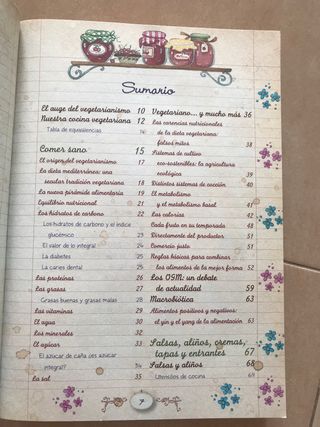 Sumario
El auge del vegetarianismo 10
Nuestra cocina vegetariana 12
Tabla de equivalencias 14
Comer sano 15
El origen del vegetarianismo 17
La dieta mediterránea: una
secular tradición vegetariana 18
La nueva pirámide alimentaria 19
Equilibrio nutricional 21
Los hidratos de carbono 22
Los hidratos de carbono y el índice
glucémico 23
El valor de lo integral 24
La diabetes 25
La caries dental 25
Las proteínas 26
Las grasas 27
Grasas buenas y grasas malas 28
Las vitaminas 29
El agua 30
Los minerales 32
El azúcar 33
El azúcar de caña ¿es azúcar
integral? 34
La sal 35
Vegetariano... y mucho más 36
Las carencias nutricionales
de la dieta vegetariana:
falsos mitos 38
Sistemas de cultivo
eco-sostenibles: la agricultura
ecológica 39
Distintos sistemas de cocción 40
El metabolismo
y el metabolismo basal 41
Las calorías 42
Cada fruto en su temporada 48
Directamente del productor 51
Comercio justo 51
Reglas básicas para combinar
los alimentos de la mejor forma 52
Los OGM: un debate
de actualidad 59
Macrobiótica 63
Alimentos positivos y negativos:
el yin y el yang de la alimentación 63
Salsas, aliños, cremas,
tapas y entrantes 67
Salsas y aliños 68
Utensilios de cocina 68
7